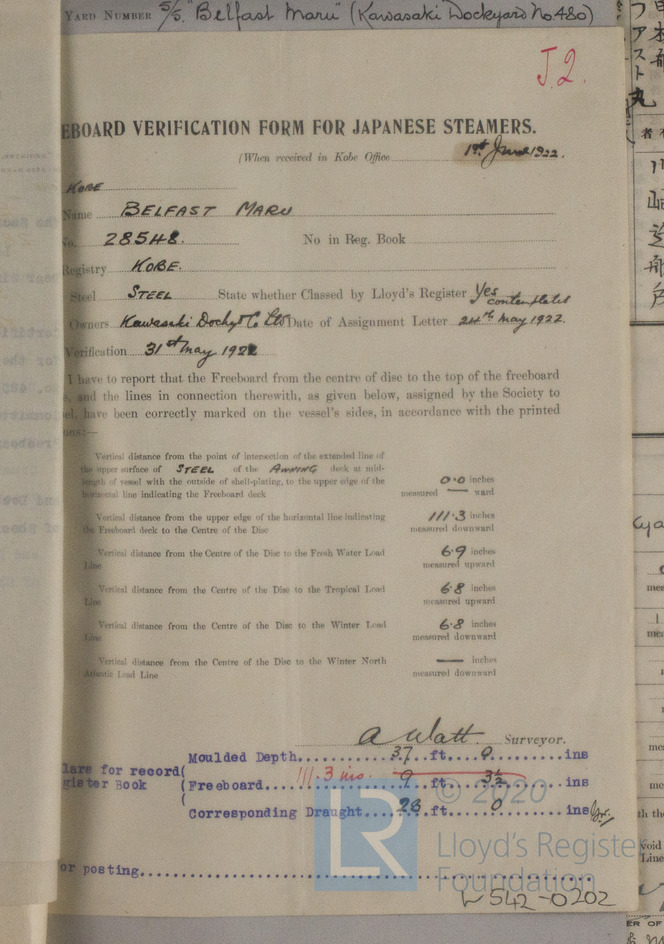 YARD NUMBER S/S. "Belfast Maru" (Kawasaki Dockyard No. 480)
J.2.
EBOARD VERIFICATION FORM FOR JAPANESE STEAMERS.
(When received in Kobe Office 1922.
KOBE
Name BELFAST MARU
No. 28548. No in Reg. Book
Registry KOBE.
Steel STEEL State whether Classed by Lloyd's Register Yes
contemplated
Owners Kawasaki Dockyd Co Ltd Date of Assignment Letter 24th May 1922.
Verification 31st May 1922
I have to report that the Freeboard from the centre of disc to the top of the freeboard
, and the lines in connection therewith, as given below, assigned by the Society to
el, have been correctly marked on the vessel's sides, in accordance with the printed
ons:—
Vertical distance from the point of intersection of the extended line of
the upper surface of STEEL of the AWNING deck at mid-
length of vessel with the outside of shell-plating, to the upper edge of the 0.0 inches
horizontal line indicating the Freeboard deck measured — ward
Vertical distance from the upper edge of the horizontal line indicating 111.3 inches
the Freeboard deck to the Centre of the Disc measured downward
Vertical distance from the Centre of the Disc to the Fresh Water Load 6.9 inches
Line measured upward
Vertical distance from the Centre of the Disc to the Tropical Load 6.8 inches
Line measured upward
Vertical distance from the Centre of the Disc to the Winter Load 6.8 inches
Line measured downward
Vertical distance from the Centre of the Disc to the Winter North — inches
Atlantic Load Line measured downward
A Watt Surveyor.
Moulded Depth 37 ft. 0 ins
lars for record( 111.3 ins.
gister Book (Freeboard 9 ft. 3½ ins
( Corresponding Draught 28 ft. 0 ins
or posting
LR © 2020
Lloyd's Register
Foundation
W542-0202